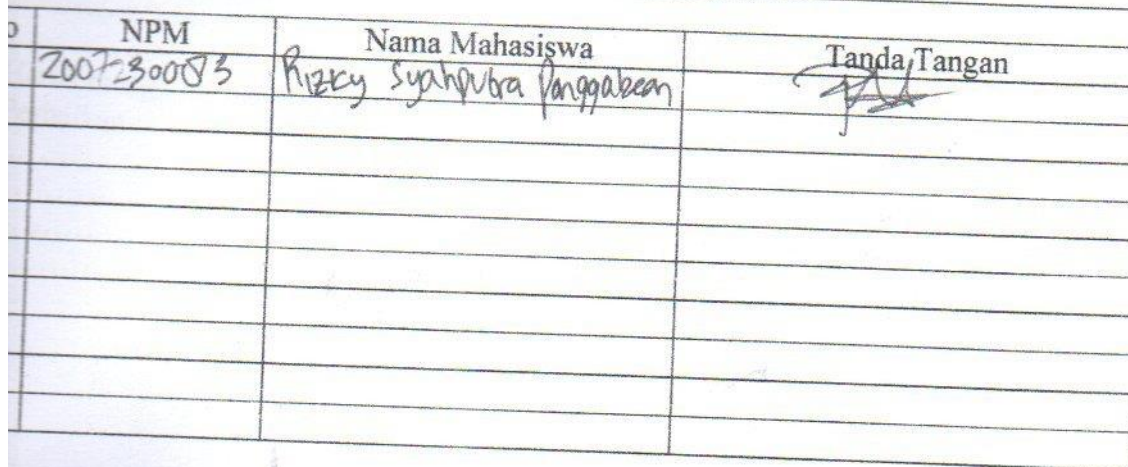 NPM Nama Mahasiswa Tanda Tangan
2007230083 Rizky Syahputra Panggabean